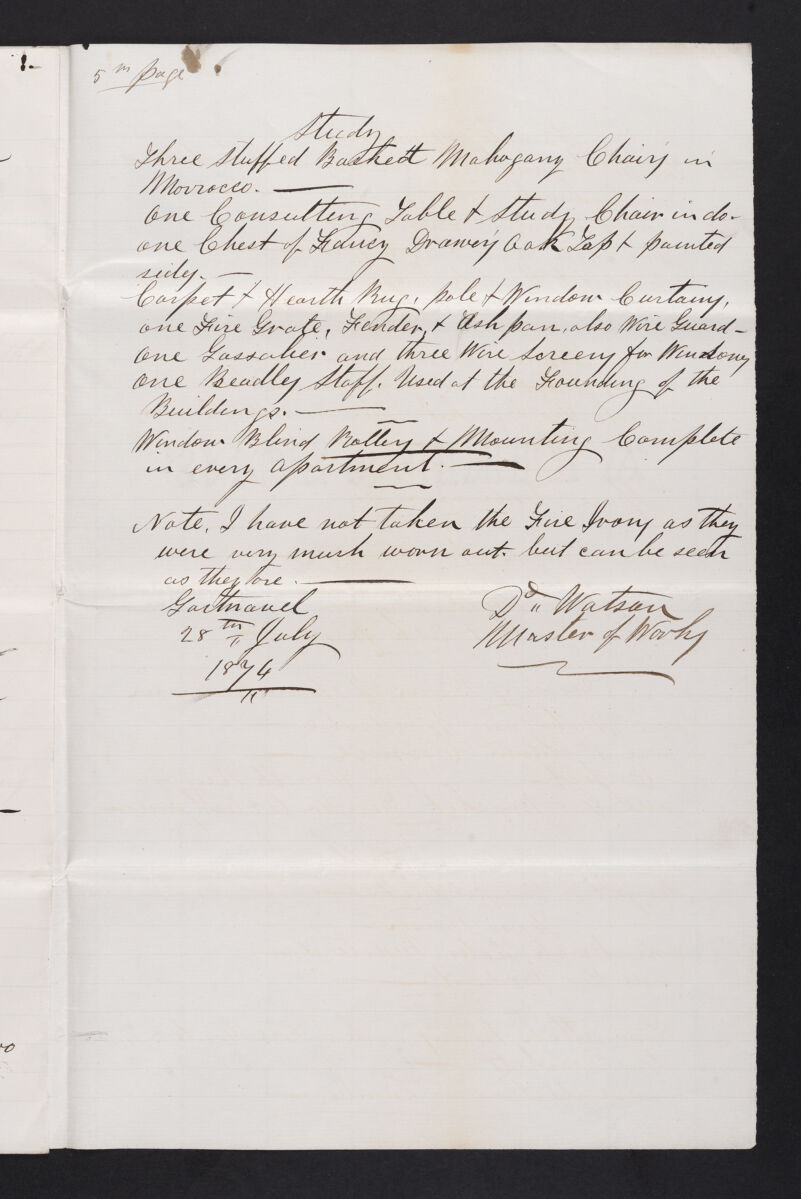 5th page
Study
Three Stuffed Baskett Mahogany Chairs in
Morrocco.
One Consulting Table & Study Chair in do-
one Chest of Fancy Drawers Oak Top & painted
sides.
Carpet & Hearth Rug, pole & Window Curtains,
one Fire Grate, Fender, & Ash pan, also Wire Guard-
one Gassalier and three Wire Screens for Windows
One Beadles Staff. Used at the Founding of the
Buildings.
Window Blind Rollers & Mounting Complete
in every apartment.
Note, I have not taken the Fire Irons as they
were very much worn out. but can be seen
as they are.
Gartnavel
28th July
1874
Dd. Watson
Master of Works